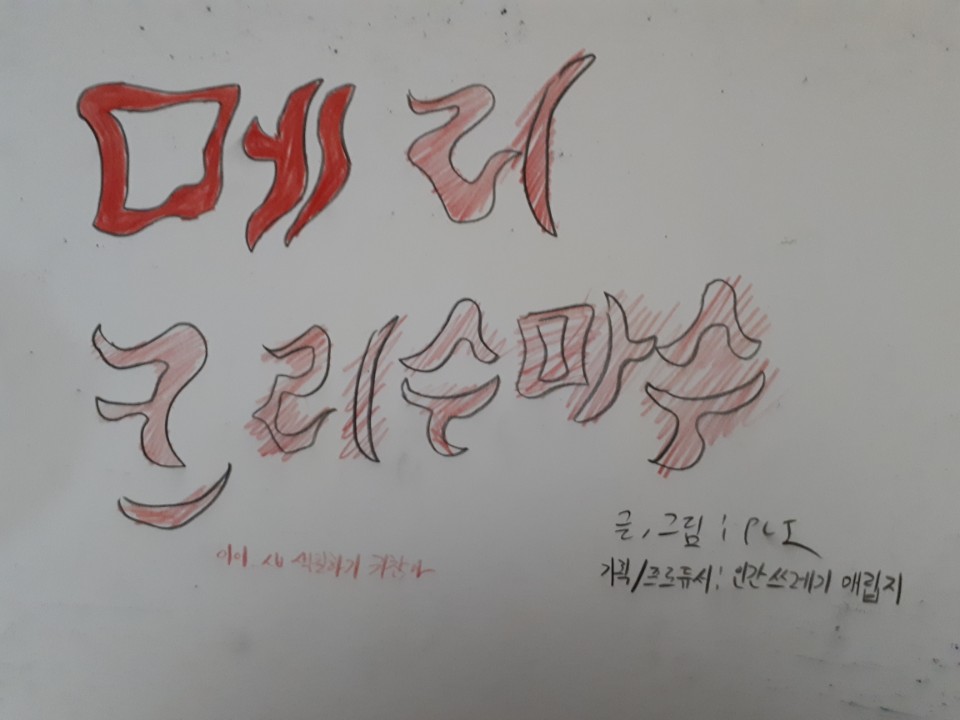 메리
크리수마수
글, 그림 :
색칠하기 귀찮아
기획/프로듀서: 인간쓰레기 매립지